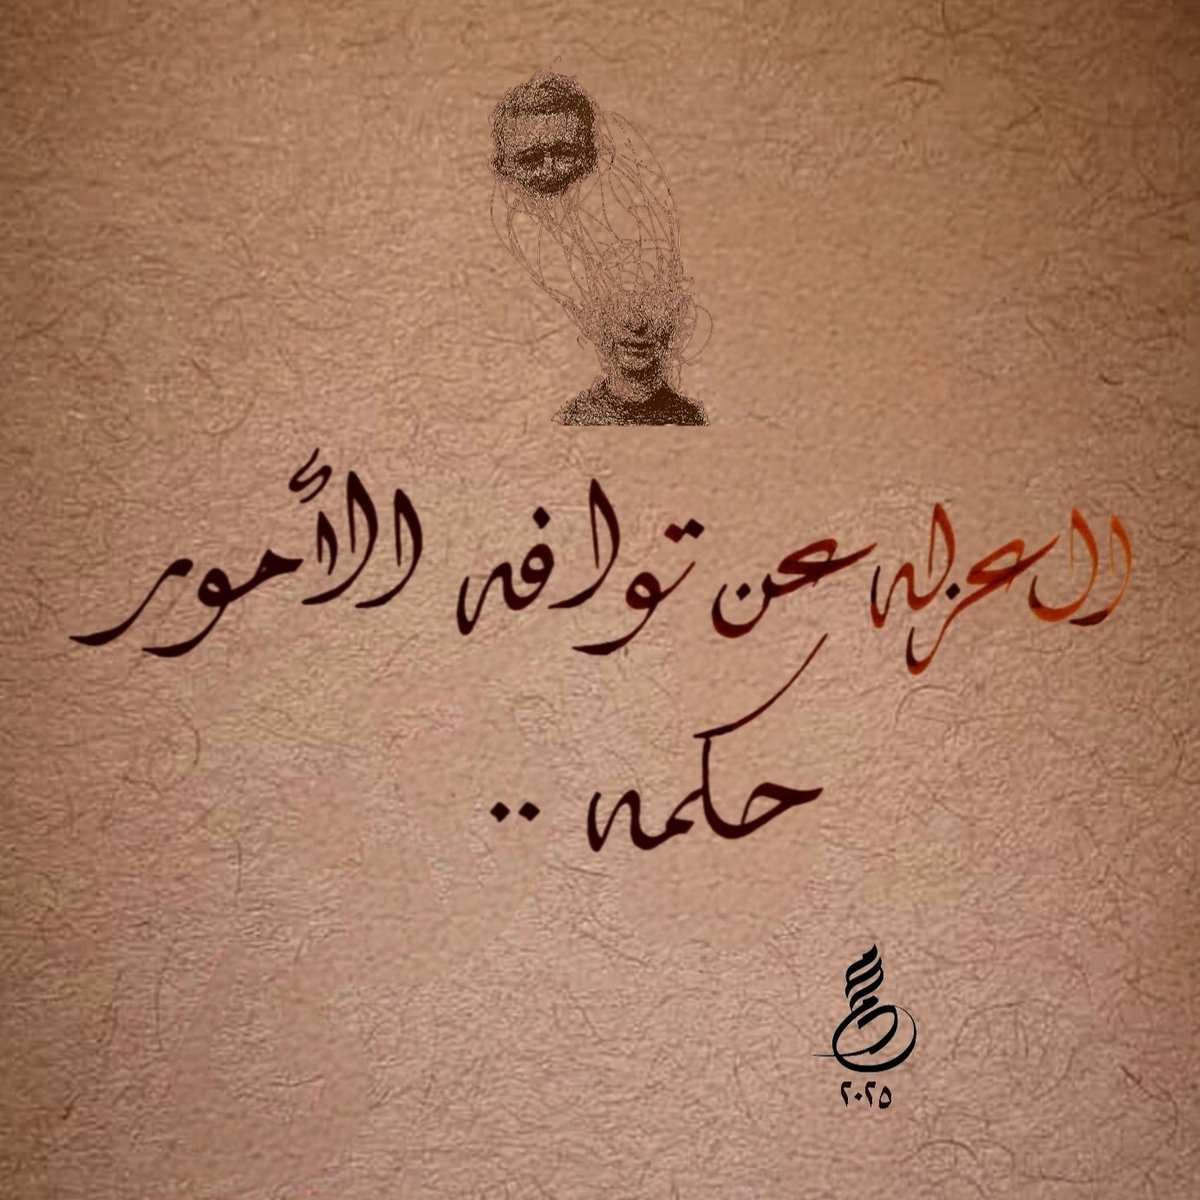 العزله عن توافه الأمور
حكمه ..
٢٠٢٥